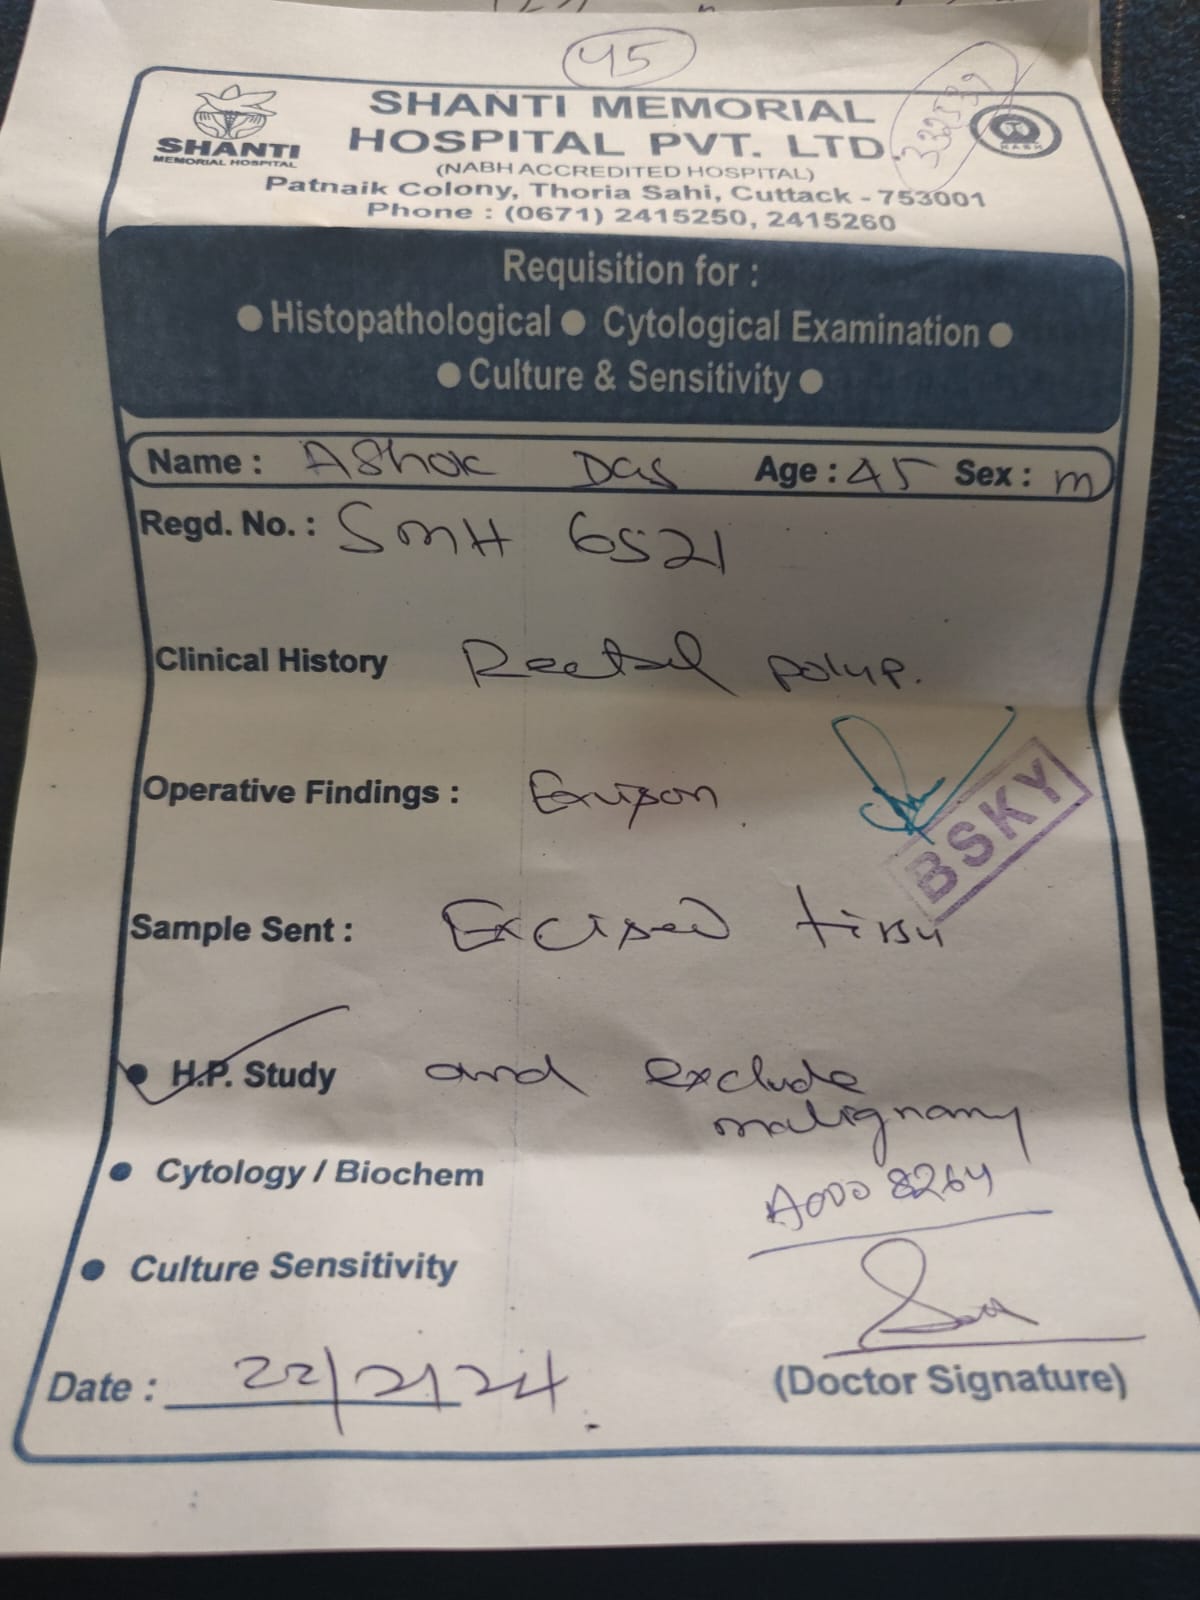 45
SHANTI MEMORIAL
HOSPITAL PVT. LTD.
SHANTI
MEMORIAL HOSPITAL
NABH
(NABH ACCREDITED HOSPITAL)
Patnaik Colony, Thoria Sahi, Cuttack - 753001
Phone : (0671) 2415250, 2415260
Requisition for :
● Histopathological ● Cytological Examination ●
● Culture & Sensitivity ●
Name : Ashok Das Age : 45 Sex : m
Regd. No. : SMH 6521
Clinical History Rectal polyp.
Operative Findings :
BSKY
Sample Sent : Excised
● H.P. Study and exclude
malignany
A000 8264
● Cytology / Biochem
● Culture Sensitivity
Date : 22/2/24.
(Doctor Signature)